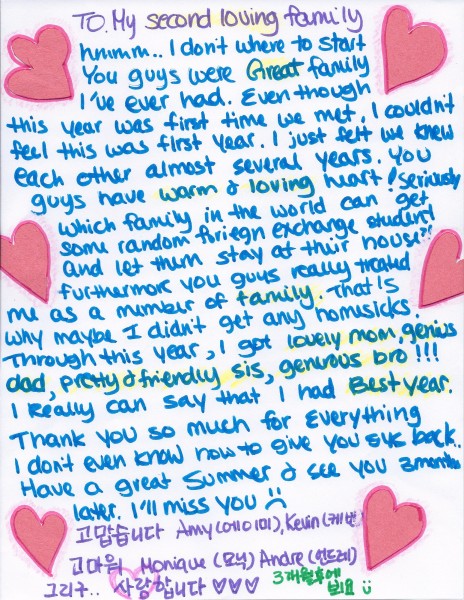 TO. My second loving family
hmmm.. I don't where to start
You guys were Great family
I've ever had. Even though
this year was first time we met, I couldn't
feel this was first year. I just felt we knew
each other almost several years. You
guys have warm & loving heart! Seriously
which family in the world can get
some random foriegn exchange student
and let them stay at their house?!
furthermore you guys really treated
me as a member of family. That is
why maybe I didn't get any homesicks.
Through this year, I got lovely mom, genius
dad, pretty & friendly sis, generous bro!!!
I Really can say that I had Best year.
Thank you so much for Everything
I don't even know how to give you back..
Have a great Summer & see you 3months
later. I'll miss you ☹
고맙습니다 Amy (에이미), Kevin (케빈)
고마워 Monique (모닉) Andre (안드레)
그리구.. 사랑합니다 ♡♡♡ 3개월후에
봐요 ☺